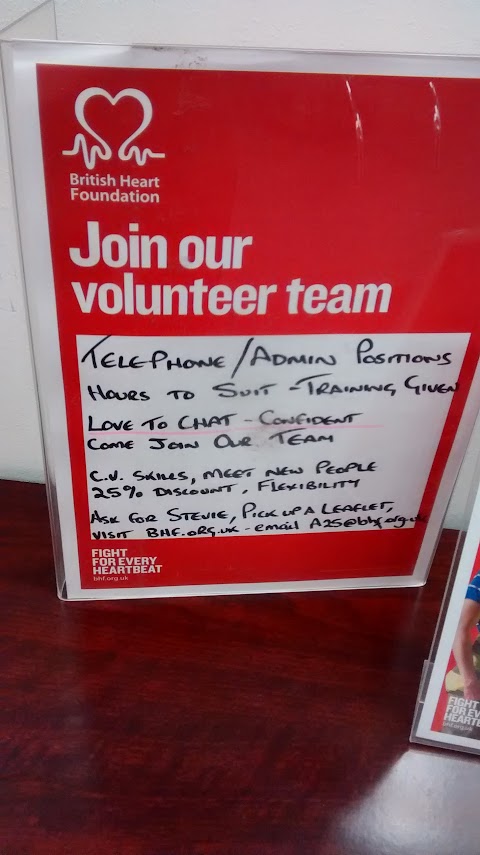 British Heart
Foundation
Join our
volunteer team
TELEPHONE/ADMIN POSITIONS
HOURS TO SUIT - TRAINING GIVEN
LOVE TO CHAT - CONFIDENT
COME JOIN OUR TEAM
C.V. SKILLS, MEET NEW PEOPLE
25% DISCOUNT, FLEXIBILITY
ASK FOR STEVIE, PICK UP A LEAFLET,
VISIT BHF.ORG.UK - email A25@bhf.org.uk
FIGHT
FOR EVERY
HEARTBEAT
bhf.org.uk
FIGHT
FOR EV
HEARTB
bhf.org.uk